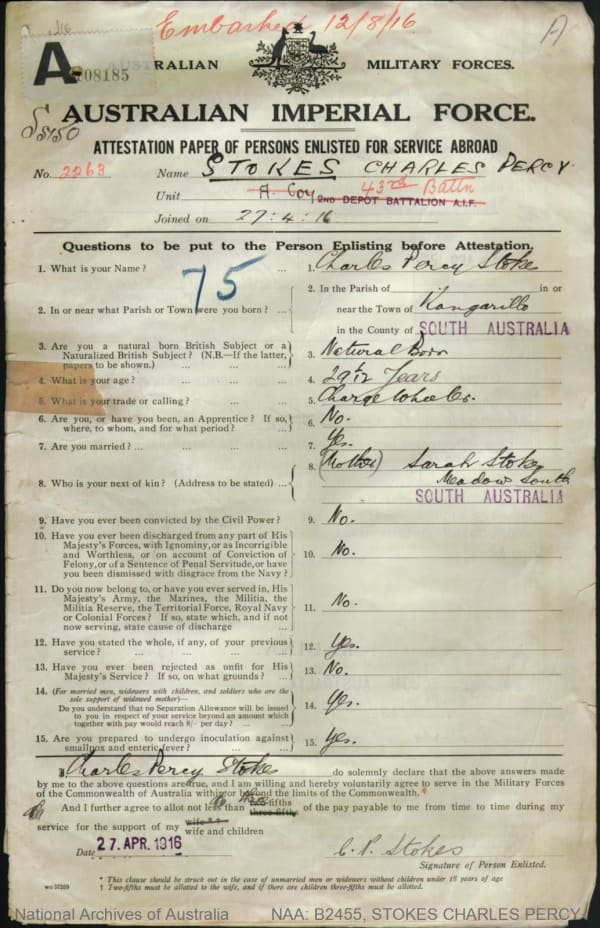 Embarked 12/8/16.
A
A 08185
AUSTRALIAN MILITARY FORCES.
AUSTRALIAN IMPERIAL FORCE.
ATTESTATION PAPER OF PERSONS ENLISTED FOR SERVICE ABROAD
No. 2263 Name STOKES CHARLES PERCY.
Unit A. Coy 2ND DEPOT BATTALION A.I.F. 43rd Battn
Joined on 27:4:16
Questions to be put to the Person Enlisting before Attestation.
75
1. What is your Name? ... 1. Charles Percy Stokes
2. In or near what Parish or Town were you born? ... 2. In the Parish of in or
near the Town of Kangarillo
in the County of SOUTH AUSTRALIA
3. Are you a natural born British Subject or a
Naturalized British Subject? (N.B.—If the latter,
papers to be shown.) ... 3. Natural Born
4. What is your age? ... 4. Years
5. What is your trade or calling? ... 5.
6. Are you, or have you been, an Apprentice? If so,
where, to whom, and for what period? ... 6. No.
7. Are you married? ... 7. Yes.
8. Who is your next of kin? (Address to be stated) ... 8. (Mother) Sarah Stokes
Meadow South
SOUTH AUSTRALIA
9. Have you ever been convicted by the Civil Power? 9. No.
10. Have you ever been discharged from any part of His
Majesty's Forces, with Ignominy, or as Incorrigible
and Worthless, or on account of Conviction of
Felony, or of a Sentence of Penal Servitude, or have
you been Dismissed with disgrace from the Navy? 10. No.
11. Do you now belong to, or have you ever served in, His
Majesty's Army, the Marines, the Militia, the
Militia Reserve, the Territorial Force, Royal Navy
or Colonial Forces? If so, state which, and if not
now serving, state cause of discharge 11. No.
12. Have you stated the whole, if any, of your previous
service? ... 12. Yes.
13. Have you ever been rejected as unfit for His
Majesty's Service? If so, on what grounds? ... 13. No.
14. (For married men, widowers with children, and soldiers who are the
sole support of widowed mother)—
Do you understand that no Separation Allowance will be issued
to you in respect of your service beyond an amount which
together with pay would reach 8/- per day? ... 14. Yes.
15. Are you prepared to undergo inoculation against
smallpox and enteric fever? ... 15. Yes.
I, Charles Percy Stokes do solemnly declare that the above answers made
by me to the above questions are true, and I am willing and hereby voluntarily agree to serve in the Military Forces
of the Commonwealth of Australia within or beyond the limits of the Commonwealth.
And I further agree to allot not less than three-fifths of the pay payable to me from time to time during my
service for the support of my wife and children
Date 27. APR. 1916 C. P. Stokes
Signature of Person Enlisted.
* This clause should be struck out in the case of unmarried men or widowers without children under 18 years of age
† Two-fifths must be allotted to the wife, and if there are children three-fifths must be allotted.
National Archives of Australia NAA: B2455, STOKES CHARLES PERCY